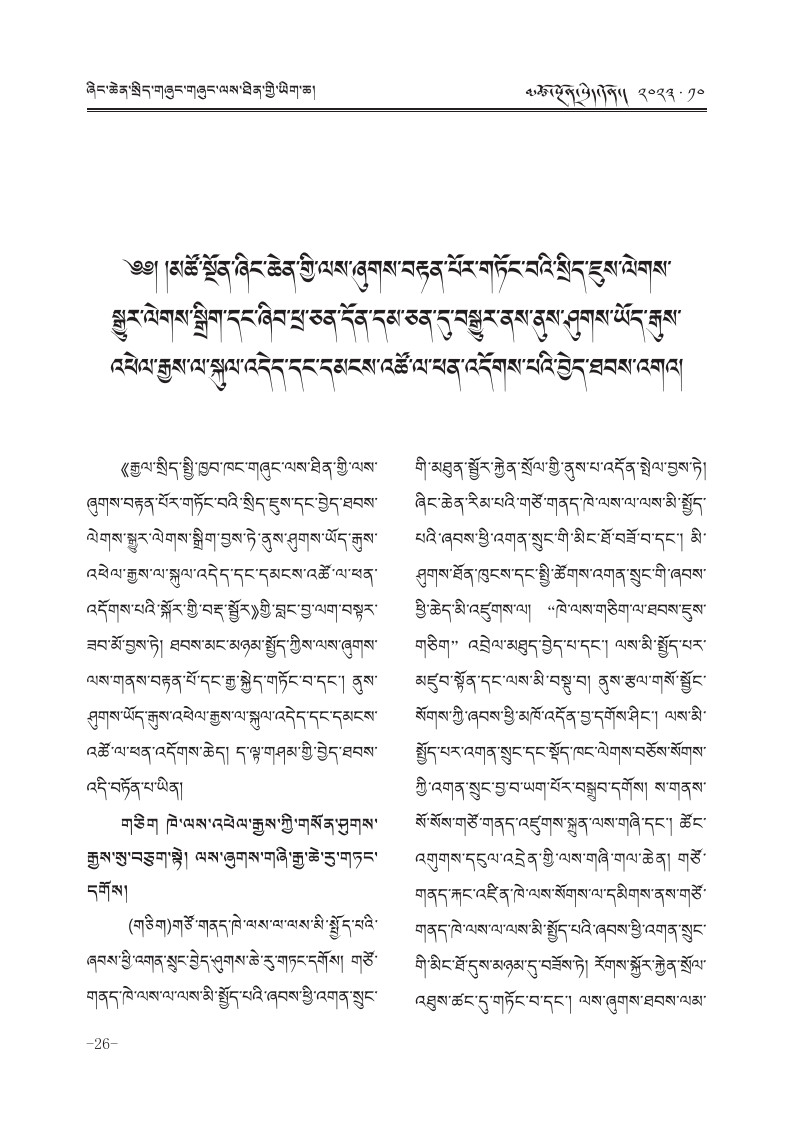 ཞིང་ཆེན་སྲིད་གཞུང་གཞུང་ལས་ཐིན་གྱི་ཡིག་ཆ།
༢༠༢༣·༡༠
༄༅། །མཚོ་སྔོན་ཞིང་ཆེན་གྱི་ལས་ཞུགས་བརྟན་པོར་གཏོང་བའི་སྲིད་ཇུས་ལེགས་
སྒྱུར་ལེགས་སྒྲིག་དང་ཞིབ་ཕྲ་ཅན་དོན་དམ་ཅན་དུ་བསྒྱུར་ནས་ནུས་ཤུགས་ཡོད་རྒུས་
འཕེལ་རྒྱས་ལ་སྐུལ་འདེད་དང་དམངས་འཚོ་ལ་ཕན་འདོགས་པའི་བྱེད་ཐབས་འགའ།
《རྒྱལ་སྲིད་སྤྱི་ཁྱབ་ཁང་གཞུང་ལས་ཐིན་གྱི་ལས་
ཞུགས་བརྟན་པོར་གཏོང་བའི་སྲིད་ཇུས་དང་བྱེད་ཐབས་
ལེགས་སྒྱུར་ལེགས་སྒྲིག་བྱས་ཏེ་ནུས་ཤུགས་ཡོད་རྒུས་
འཕེལ་རྒྱས་ལ་སྐུལ་འདེད་དང་དམངས་འཚོ་ལ་ཕན་
འདོགས་པའི་སྐོར་གྱི་བརྡ་སྦྱོར》གྱི་བླང་བྱ་ལག་བསྟར་
ཟབ་མོ་བྱས་ཏེ། ཐབས་མང་མཉམ་སྤྱོད་ཀྱིས་ལས་ཞུགས་
ལས་གནས་བརྟན་པོ་དང་རྒྱ་སྐྱེད་གཏོང་བ་དང་། ནུས་
ཤུགས་ཡོད་རྒུས་འཕེལ་རྒྱས་ལ་སྐུལ་འདེད་དང་དམངས་
འཚོ་ལ་ཕན་འདོགས་ཆེད། ད་ལྟ་གཤམ་གྱི་བྱེད་ཐབས་
འདི་བཏོན་པ་ཡིན།
གཅིག ཁེ་ལས་འཕེལ་རྒྱས་ཀྱི་གསོན་ཤུགས་
རྒྱས་སུ་བཅུག་སྟེ། ལས་ཞུགས་གཞི་རྒྱ་ཆེ་རུ་གཏང་
དགོས།
(གཅིག)གཙོ་གནད་ཁེ་ལས་ལ་ལས་མི་སྤྱོད་པའི་
ཞབས་ཕྱི་འགན་སྲུང་བྱེད་ཤུགས་ཆེ་རུ་གཏང་དགོས། གཙོ་
གནད་ཁེ་ལས་ལ་ལས་མི་སྤྱོད་པའི་ཞབས་ཕྱི་འགན་སྲུང་
གི་མཐུན་སྦྱོར་རྐྱེན་སྲོལ་གྱི་ནུས་པ་འདོན་སྤེལ་བྱས་ཏེ།
ཞིང་ཆེན་རིམ་པའི་གཙོ་གནད་ཁེ་ལས་ལ་ལས་མི་སྤྱོད་
པའི་ཞབས་ཕྱི་འགན་སྲུང་གི་མིང་ཐོ་བཟོ་བ་དང་། མི་
ཤུགས་ཐོན་ཁུངས་དང་སྤྱི་ཚོགས་འགན་སྲུང་གི་ཞབས་
ཕྱི་ཆེད་མི་འཛུགས་ལ། “ཁེ་ལས་གཅིག་ལ་ཐབས་ཇུས་
གཅིག” འབྲེལ་མཐུད་བྱེད་པ་དང་། ལས་མི་སྤྱོད་པར་
མཛུབ་སྟོན་དང་ལས་མི་བསྡུ་བ། ནུས་རྩལ་གསོ་སྦྱོང་
སོགས་ཀྱི་ཞབས་ཕྱི་མཁོ་འདོན་བྱ་དགོས་ཤིང་། ལས་མི་
སྤྱོད་པར་འགན་སྲུང་དང་སྡོད་ཁང་ལེགས་བཅོས་སོགས་
ཀྱི་འགན་སྲུང་བྱ་བ་ཡག་པོར་བསྒྲུབ་དགོས། ས་གནས་
སོ་སོས་གཙོ་གནད་འཛུགས་སྐྲུན་ལས་གཞི་དང་། ཚོང་
འགུགས་དངུལ་འདྲེན་གྱི་ལས་གཞི་གལ་ཆེན། གཙོ་
གནད་རྐང་འཛིན་ཁེ་ལས་སོགས་ལ་དམིགས་ནས་གཙོ་
གནད་ཁེ་ལས་ལ་ལས་མི་སྤྱོད་པའི་ཞབས་ཕྱི་འགན་སྲུང་
གི་མིང་ཐོ་དུས་མཉམ་དུ་བཟོས་ཏེ། རོགས་སྐྱོར་རྐྱེན་སྲོལ་
འཐུས་ཚང་དུ་གཏོང་བ་དང་། ལས་ཞུགས་ཐབས་ལམ་
–26–